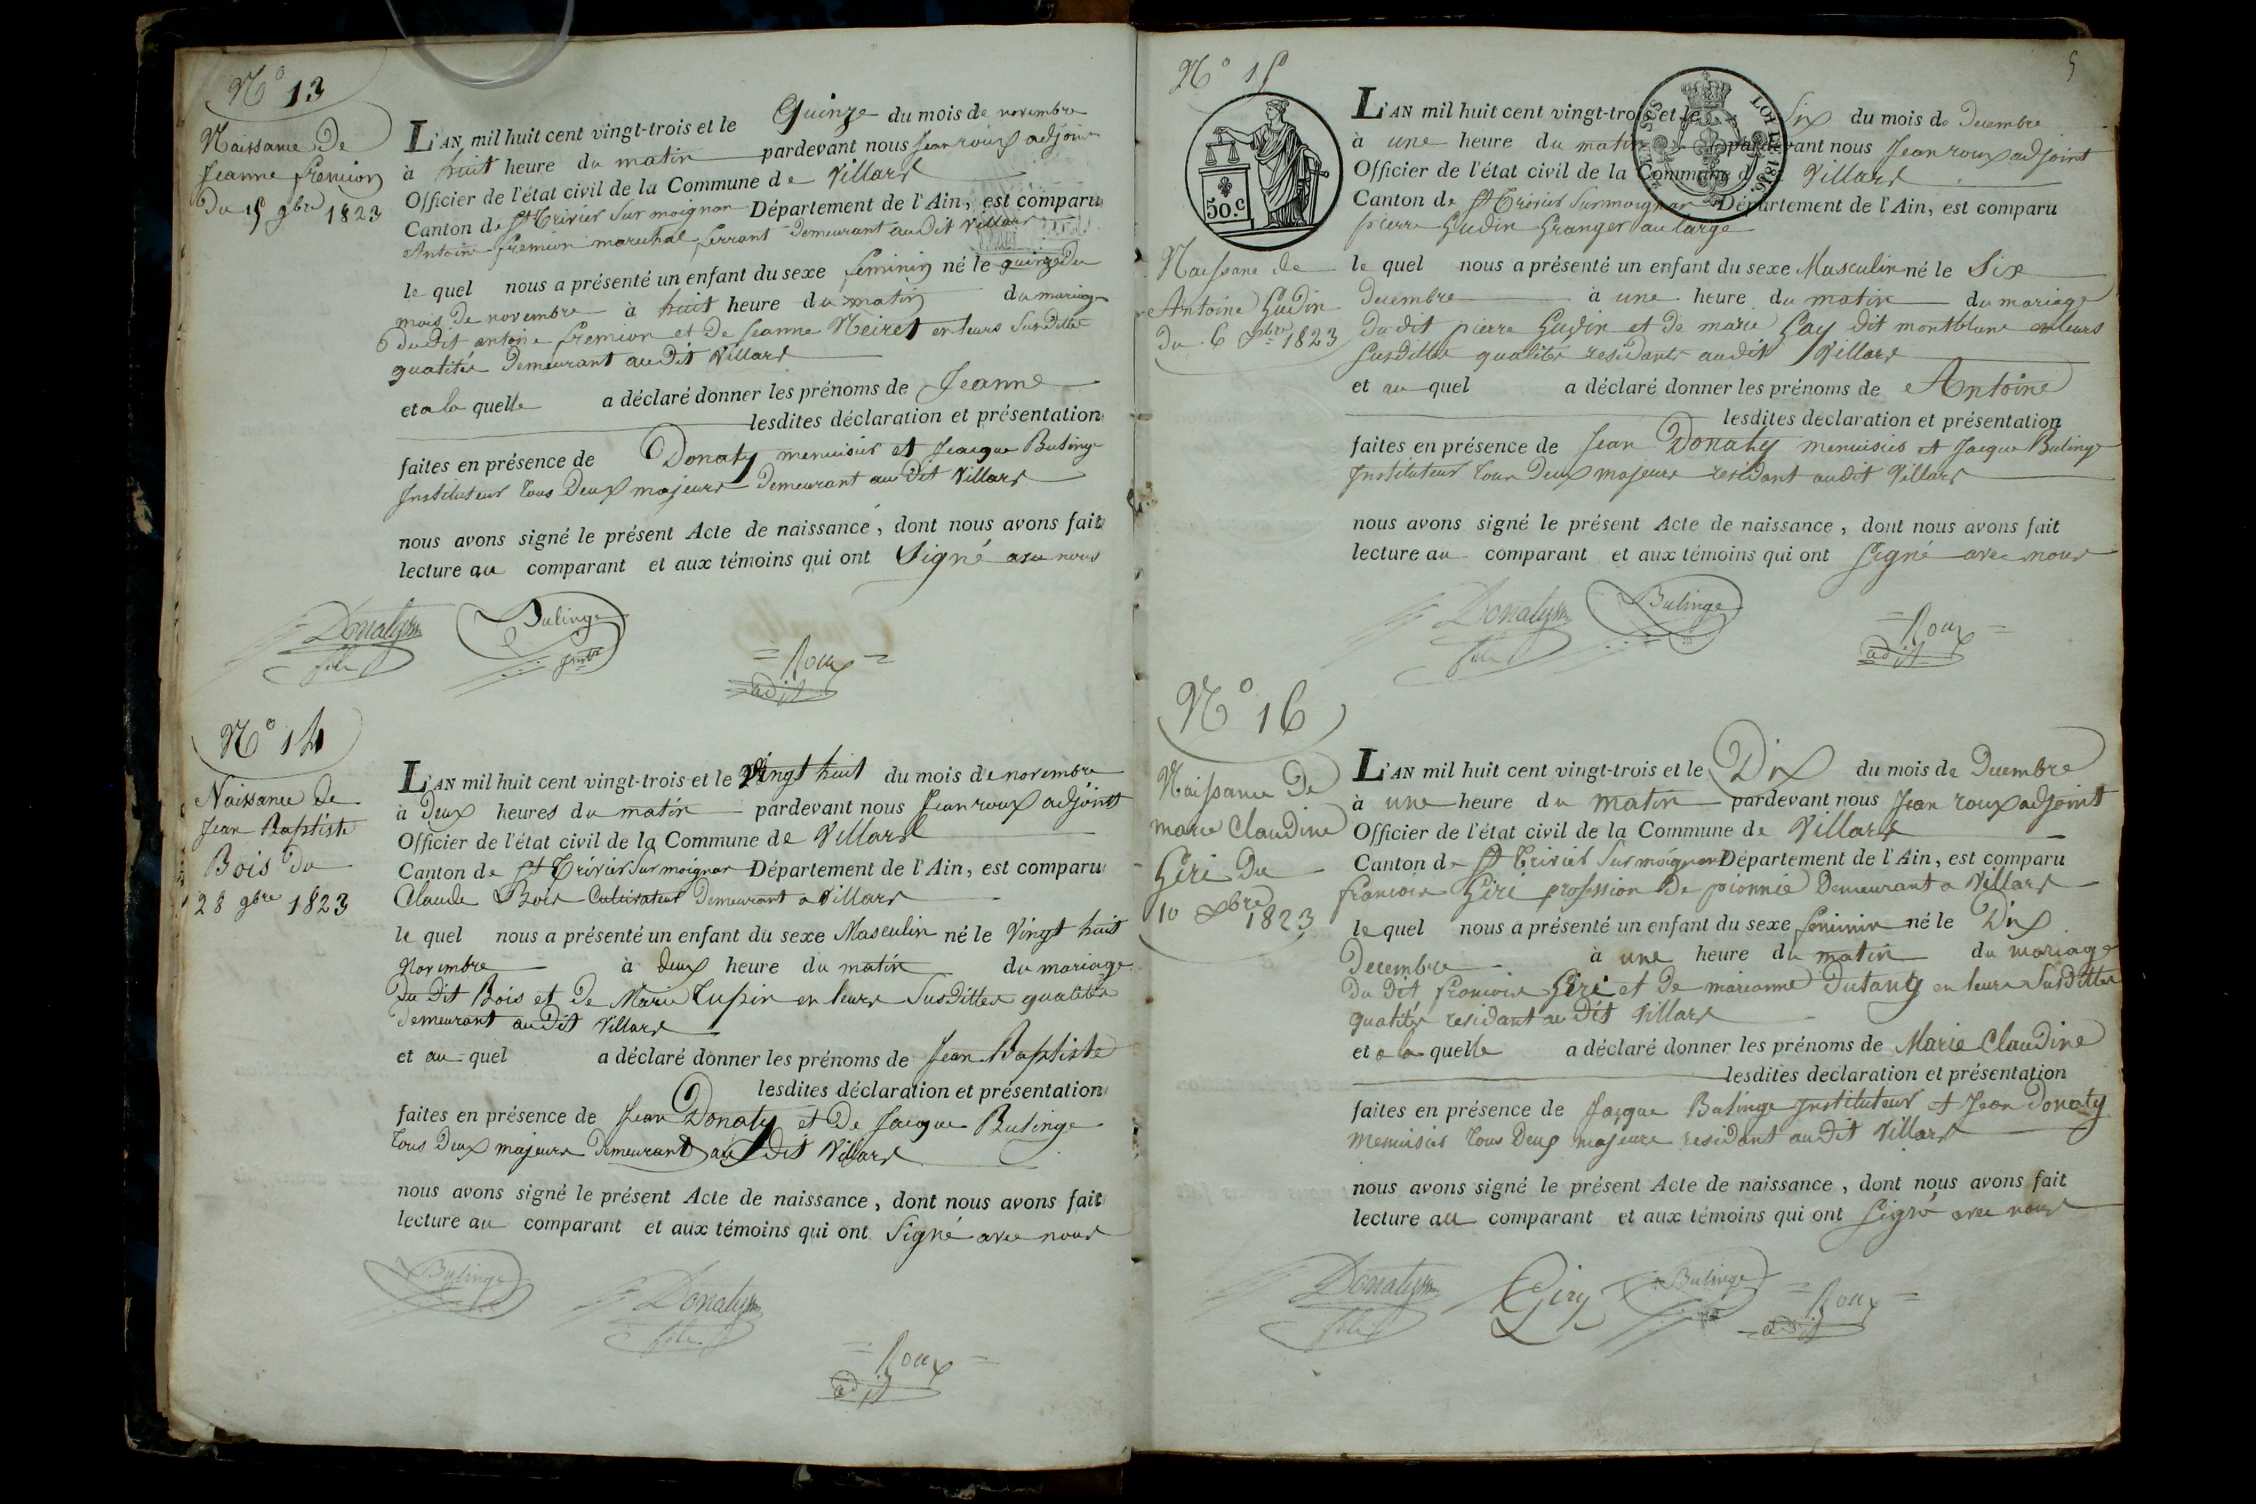 N° 13
Naissance De
Jeanne fremion
Du 15 9bre 1823
L'AN mil huit cent vingt-trois et le Quinze du mois de novembre
à huit heure du matin pardevant nous Jean roux adjoint
Officier de l'état civil de la Commune de Villars
Canton de St Trivier Sur moignan Département de l'Ain, est comparu
Antoine fremion marechal ferrant Demeurant au Dit Villars
le quel nous a présenté un enfant du sexe feminin né le quinze Du
mois De novembre à huit heure du matin du mariage
du dit antoine fremion et De Jeanne Neiret en leurs Susdittes
qualités Demeurant au Dit Villars
et a la quelle a déclaré donner les prénoms de Jeanne
lesdites déclaration et présentation
faites en présence de Donaty menuisier et Jacque Bulinge
Instituteur tous Deux majeurs Demeurant au Dit Villars
nous avons signé le présent Acte de naissance, dont nous avons fait
lecture au comparant et aux témoins qui ont Signé avec nous
Donaty
fils
Bulinge
Roux
adjt
N° 14
Naissance de
Jean Baptiste
Bois du
28 9bre 1823
L'AN mil huit cent vingt-trois et le vingt huit du mois de novembre
à Deux heures du matin pardevant nous Jean roux adjoint
Officier de l'état civil de la Commune de Villars
Canton de St Trivier Sur moignan Département de l'Ain, est comparu
Claude Bois Cultivateur Demeurant a Villars
le quel nous a présenté un enfant du sexe Masculin né le Vingt huit
Novembre à deux heure du matin du mariage
Du Dit Bois et De Marie Tupin en leurs Susdittes qualités
demeurant au Dit Villars
et au quel a déclaré donner les prénoms de Jean Baptiste
lesdites déclaration et présentation
faites en présence de Jean Donaty et De Jacque Bulinge
tous Deux majeurs Demeurant au Dit Villars
nous avons signé le présent Acte de naissance, dont nous avons fait
lecture au comparant et aux témoins qui ont Signé avec nous
Bulinge
Donaty
fils
Roux
adjt
5
N° 15
50.c
LOI DE 1816.
Naissane de
Antoine Gudin
Du 6 Xbre 1823
L'AN mil huit cent vingt-trois et le Six du mois de Decembre
à une heure du matin pardevant nous Jean roux adjoint
Officier de l'état civil de la Commune de Villars
Canton de St Trivier Sur moignan Département de l'Ain, est comparu
pierre Gudin Granger au large
le quel nous a présenté un enfant du sexe Masculin né le Six
Decembre à une heure du matin du mariage
du dit pierre Gudin et de marie Gay dit montblanc en leurs
susdittes qualités residants au dit Villars
et au quel a déclaré donner les prénoms de Antoine
lesdites déclaration et présentation
faites en présence de Jean Donaty menuisier et Jacque Bulinge
Instituteur tous Deux majeurs residant au dit Villars
nous avons signé le présent Acte de naissance, dont nous avons fait
lecture au comparant et aux témoins qui ont Signé avec nous
Donaty
fils
Bulinge
Roux
adjt
N° 16
Naissance De
marie Claudine
Géri Du
10 Xbre
1823
L'AN mil huit cent vingt-trois et le Dix du mois de Decembre
à une heure du matin pardevant nous Jean roux adjoint
Officier de l'état civil de la Commune de Villars
Canton de St Trivier Sur moignan Département de l'Ain, est comparu
francois Géri profession De pionnié Demeurant a Villars
le quel nous a présenté un enfant du sexe feminin né le Dix
Decembre à une heure du matin du mariage
Du Dit francois Géri et De marianne Dutang en leurs Susdittes
qualités residant au Dit Villars
et a la quelle a déclaré donner les prénoms de Marie Claudine
lesdites déclaration et présentation
faites en présence de Jacque Bulinge Instituteur et Jean Donaty
Menuisier tous Deux majeurs residant au dit Villars
nous avons signé le présent Acte de naissance, dont nous avons fait
lecture au comparant et aux témoins qui ont Signé avec nous
Donaty
fils
Giry
Bulinge
Roux
adjt